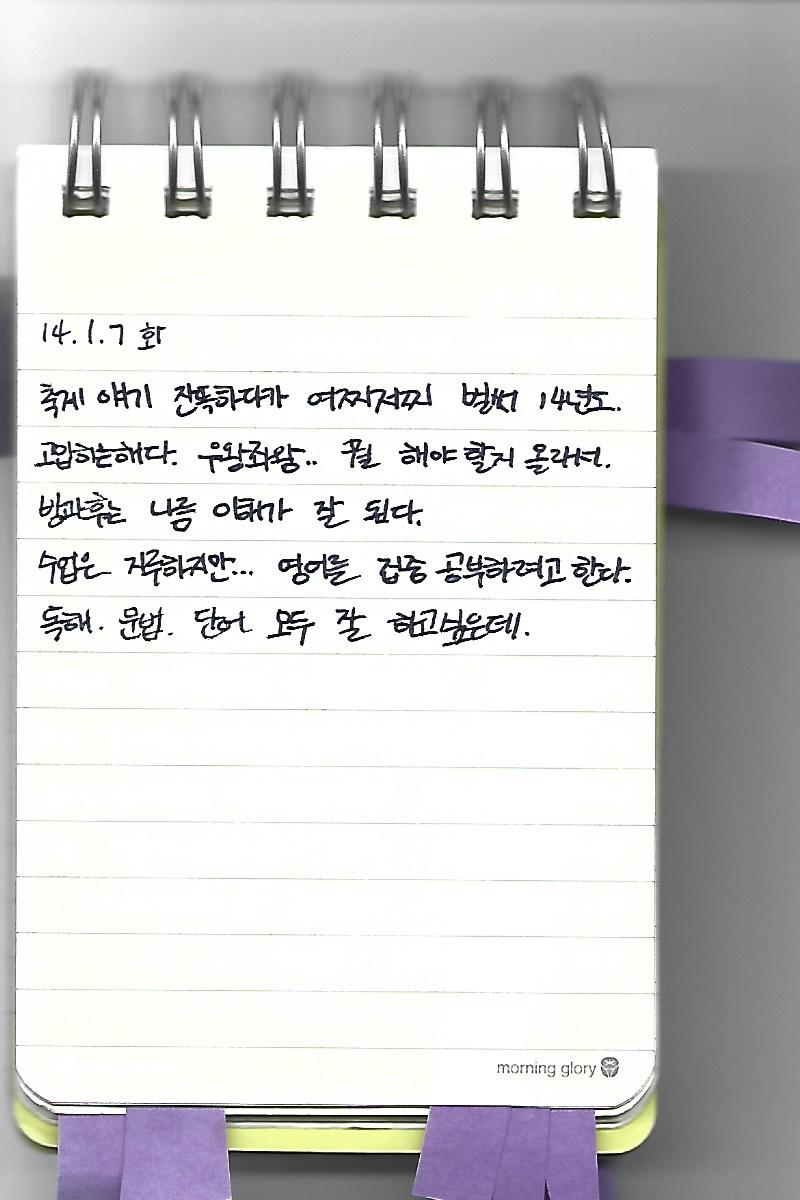 14.1.7 화
축제 얘기 잔뜩하다가 어찌저찌 벌써 14년도.
고입하는해다. 우왕좌왕.. 뭘 해야 할지 몰라서.
방과후는 나름 이해가 잘 된다.
수업은 지루하지만... 영어를 집중 공부하려고 한다.
독해. 문법. 단어 모두 잘 하고싶은데.
morning glory